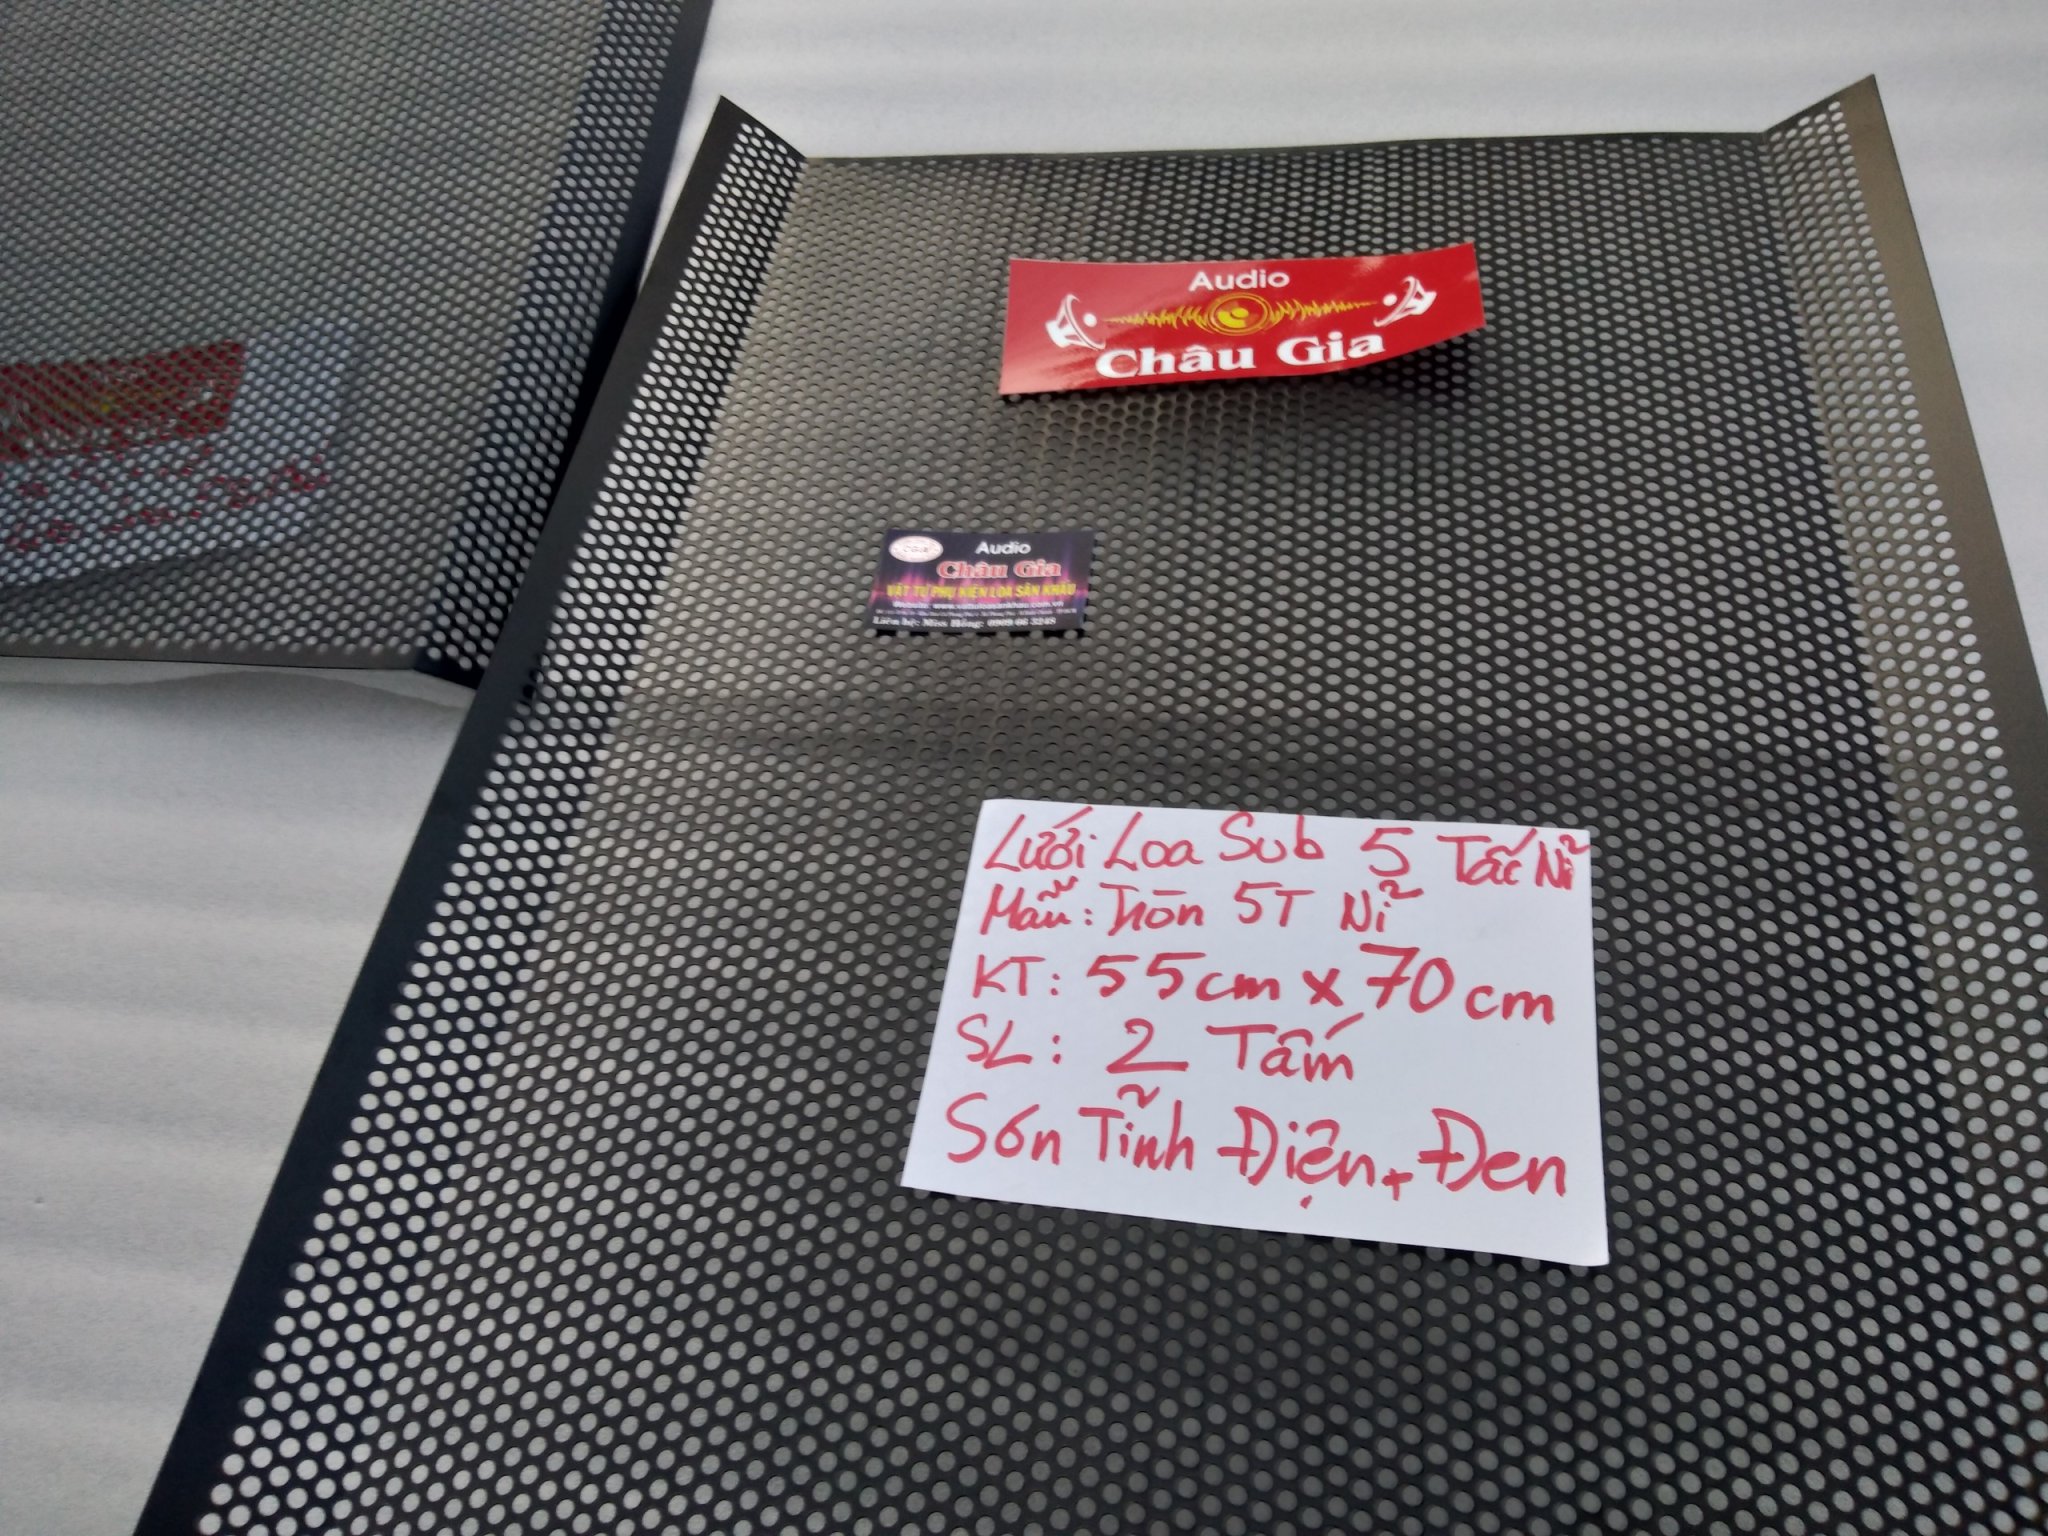 Audio
Châu Gia
CGIA
Audio
Châu Gia
VẬT TƯ PHỤ KIỆN LOA SÂN KHẤU
Website: www.vattuloasankhau.com.vn
Liên hệ: Miss Hồng: 0909 66 3248
Lưới Loa Sub 5 Tấc Nĩ
Mẫu: tròn 5T Nĩ
KT: 55cm x 70cm
SL: 2 Tấm
Sơn Tĩnh Điện + Đen